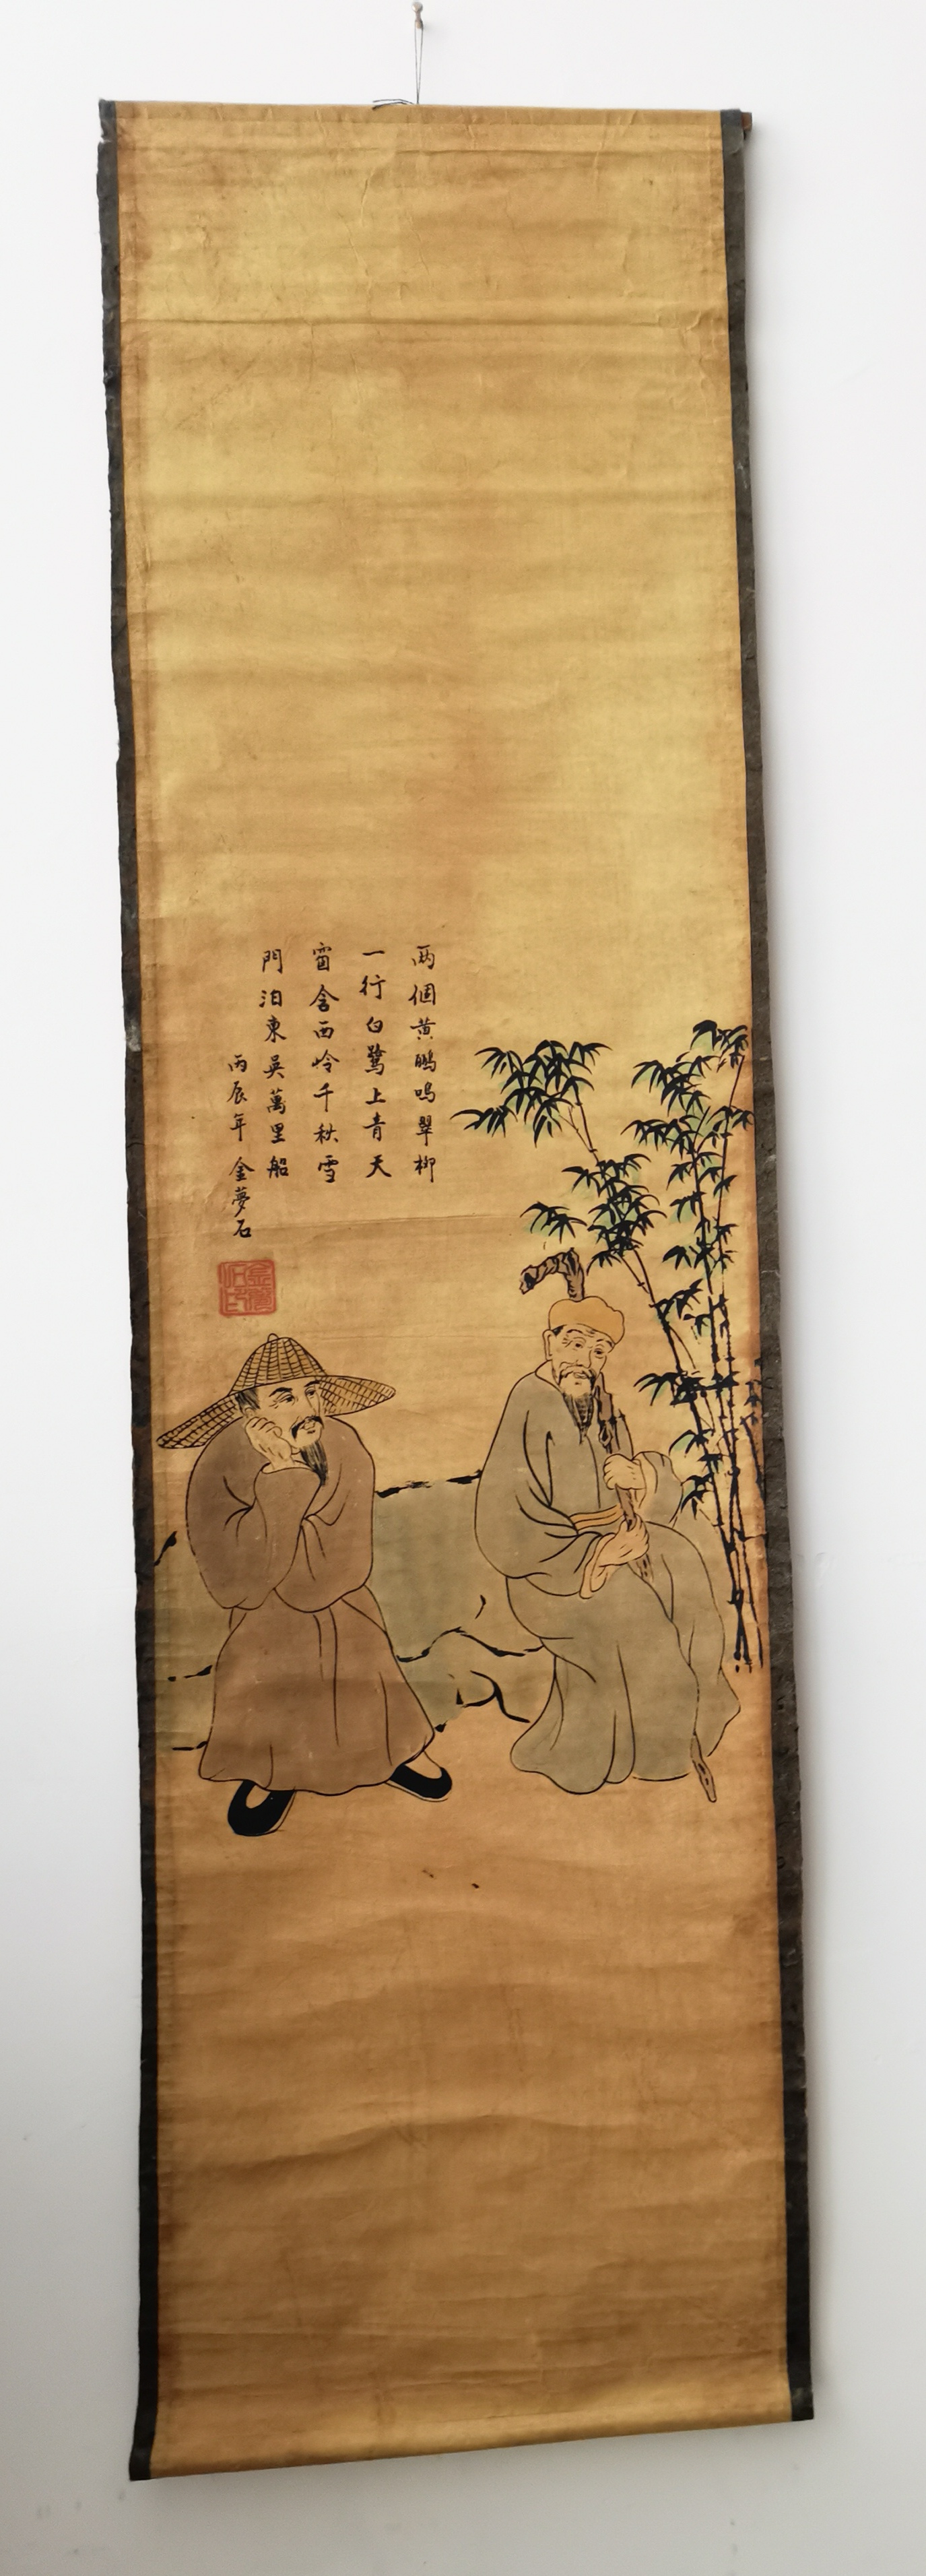 两個黄鵬鳴翠柳
一行白鷺上青天
窗含西岭千秋雪
門泊東吳萬里船
丙辰年 金夢石
金夢石印